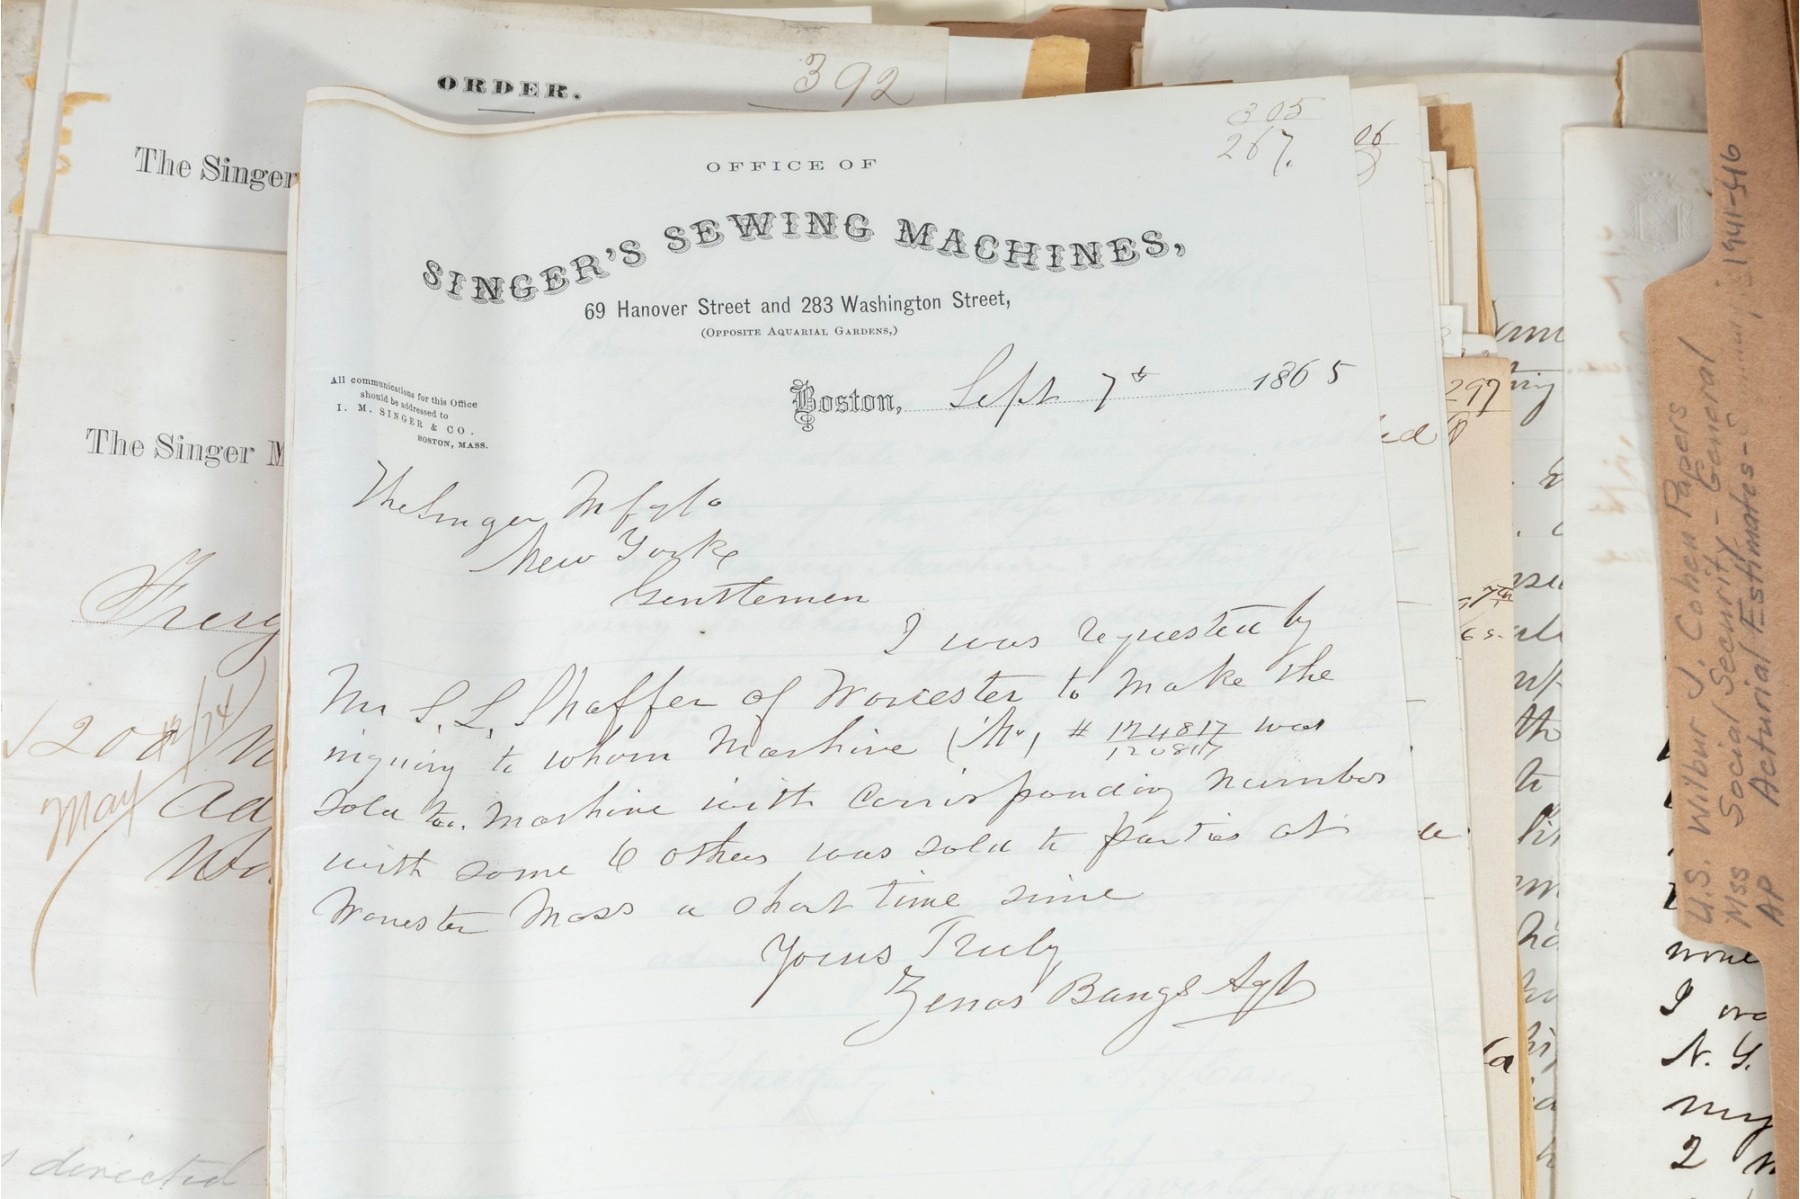 ORDER.
392
The Singer
305
267.
OFFICE OF
SINGER'S SEWING MACHINES,
69 Hanover Street and 283 Washington Street,
(OPPOSITE AQUARIAL GARDENS,)
All communications for this Office
should be addressed to
I. M. SINGER & CO.
BOSTON, MASS.
Boston, Sept 7th 1865
The Singer Mfg Co
New York
Gentlemen
I was requested by
Mr S. L. Shaffer of Worcester to make the
inquiry to whom Machine # 124817
120817 was
sold to. Machine with Corrisponding number
with some 6 others was sold to parties at
Worcester Mass a short time since
Yours Truly
Zenas Bangs Agt
The Singer M
May
directed
297
none
I
N. Y.
my
2
U.S. Wilbur J. Cohen Papers
Mss Social Security - General
AP Acturial Estimates - 1941-46